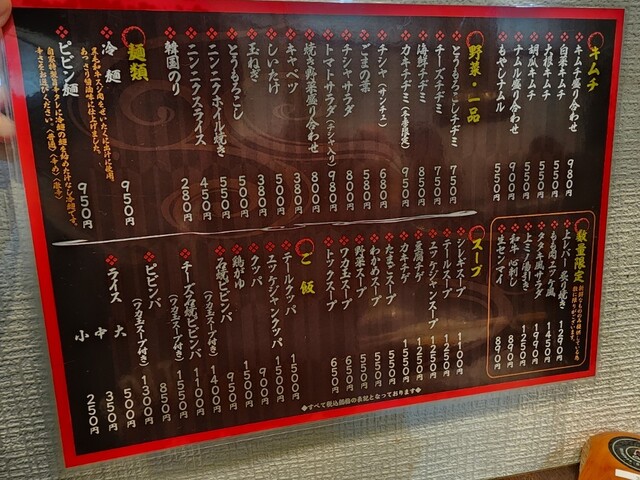 キムチ
キムチ盛り合わせ 980円
白菜キムチ 550円
大根キムチ 550円
胡瓜キムチ 550円
ナムル盛り合わせ 900円
もやしナムル 550円
野菜・一品
とうもろこしチヂミ 750円
チーズチヂミ 750円
海鮮チヂミ 850円
カキチヂミ(冬季限定) 950円
チシャ(サンチュ) 680円
ごまの葉 580円
チシャサラダ 800円
トマトサラダ(チシャ入り) 980円
焼き野菜盛り合わせ 800円
キャベツ 380円
しいたけ 500円
玉ねぎ 380円
とうもろこし 500円
ニンニクホイル焼き 500円
ニンニクスライス 450円
韓国のり 280円
麺類
冷麺 950円
ピビン麺 950円
数量限定
上レバー炙り焼き 1290円
もも肉ユッケ風 1450円
タタキ風サラダ 1990円
上ミノ湯引き 1250円
和牛心刺し 890円
生センマイ 890円
スープ
シレギスープ 1100円
テールスープ 1250円
ユッケジャンスープ 1250円
豆腐チゲ 1250円
カキチゲ 1550円
たまごスープ 550円
わかめスープ 550円
野菜スープ 550円
ワカ玉スープ 650円
トックスープ 650円
ご飯
テールクッパ 1500円
ユッケジャンクッパ 1500円
クッパ 900円
鶏がゆ 1500円
石焼ピビンパ 950円
(ワカ玉スープ付き) 1400円
チーズ石焼ピビンパ 1100円
(ワカ玉スープ付き) 1550円
ピビンパ 850円
(ワカ玉スープ付き) 1300円
ライス 大 500円
中 350円
小 250円
◆すべて税込価格の表記となっております◆